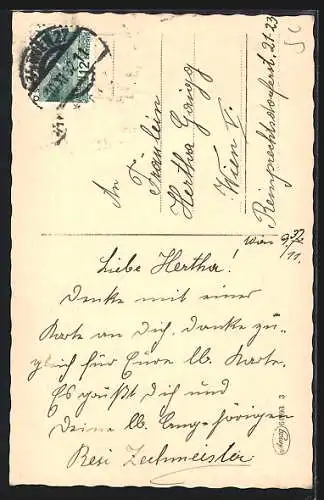 An
Fräulein
Hertha
Wien V.
Reinprechtsdorferstr. 21-23
Wien
Liebe Hertha!
Denke mit einer
Karte an Dich, danke zu-
gleich für Eure lb. Karte.
Es grüßt Dich und
Deine lb. Angehörigen
Resi Zechmeister